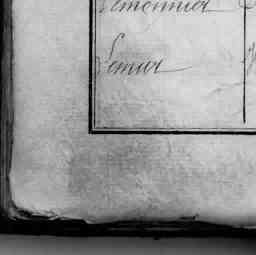 Lemonnier
Lemur